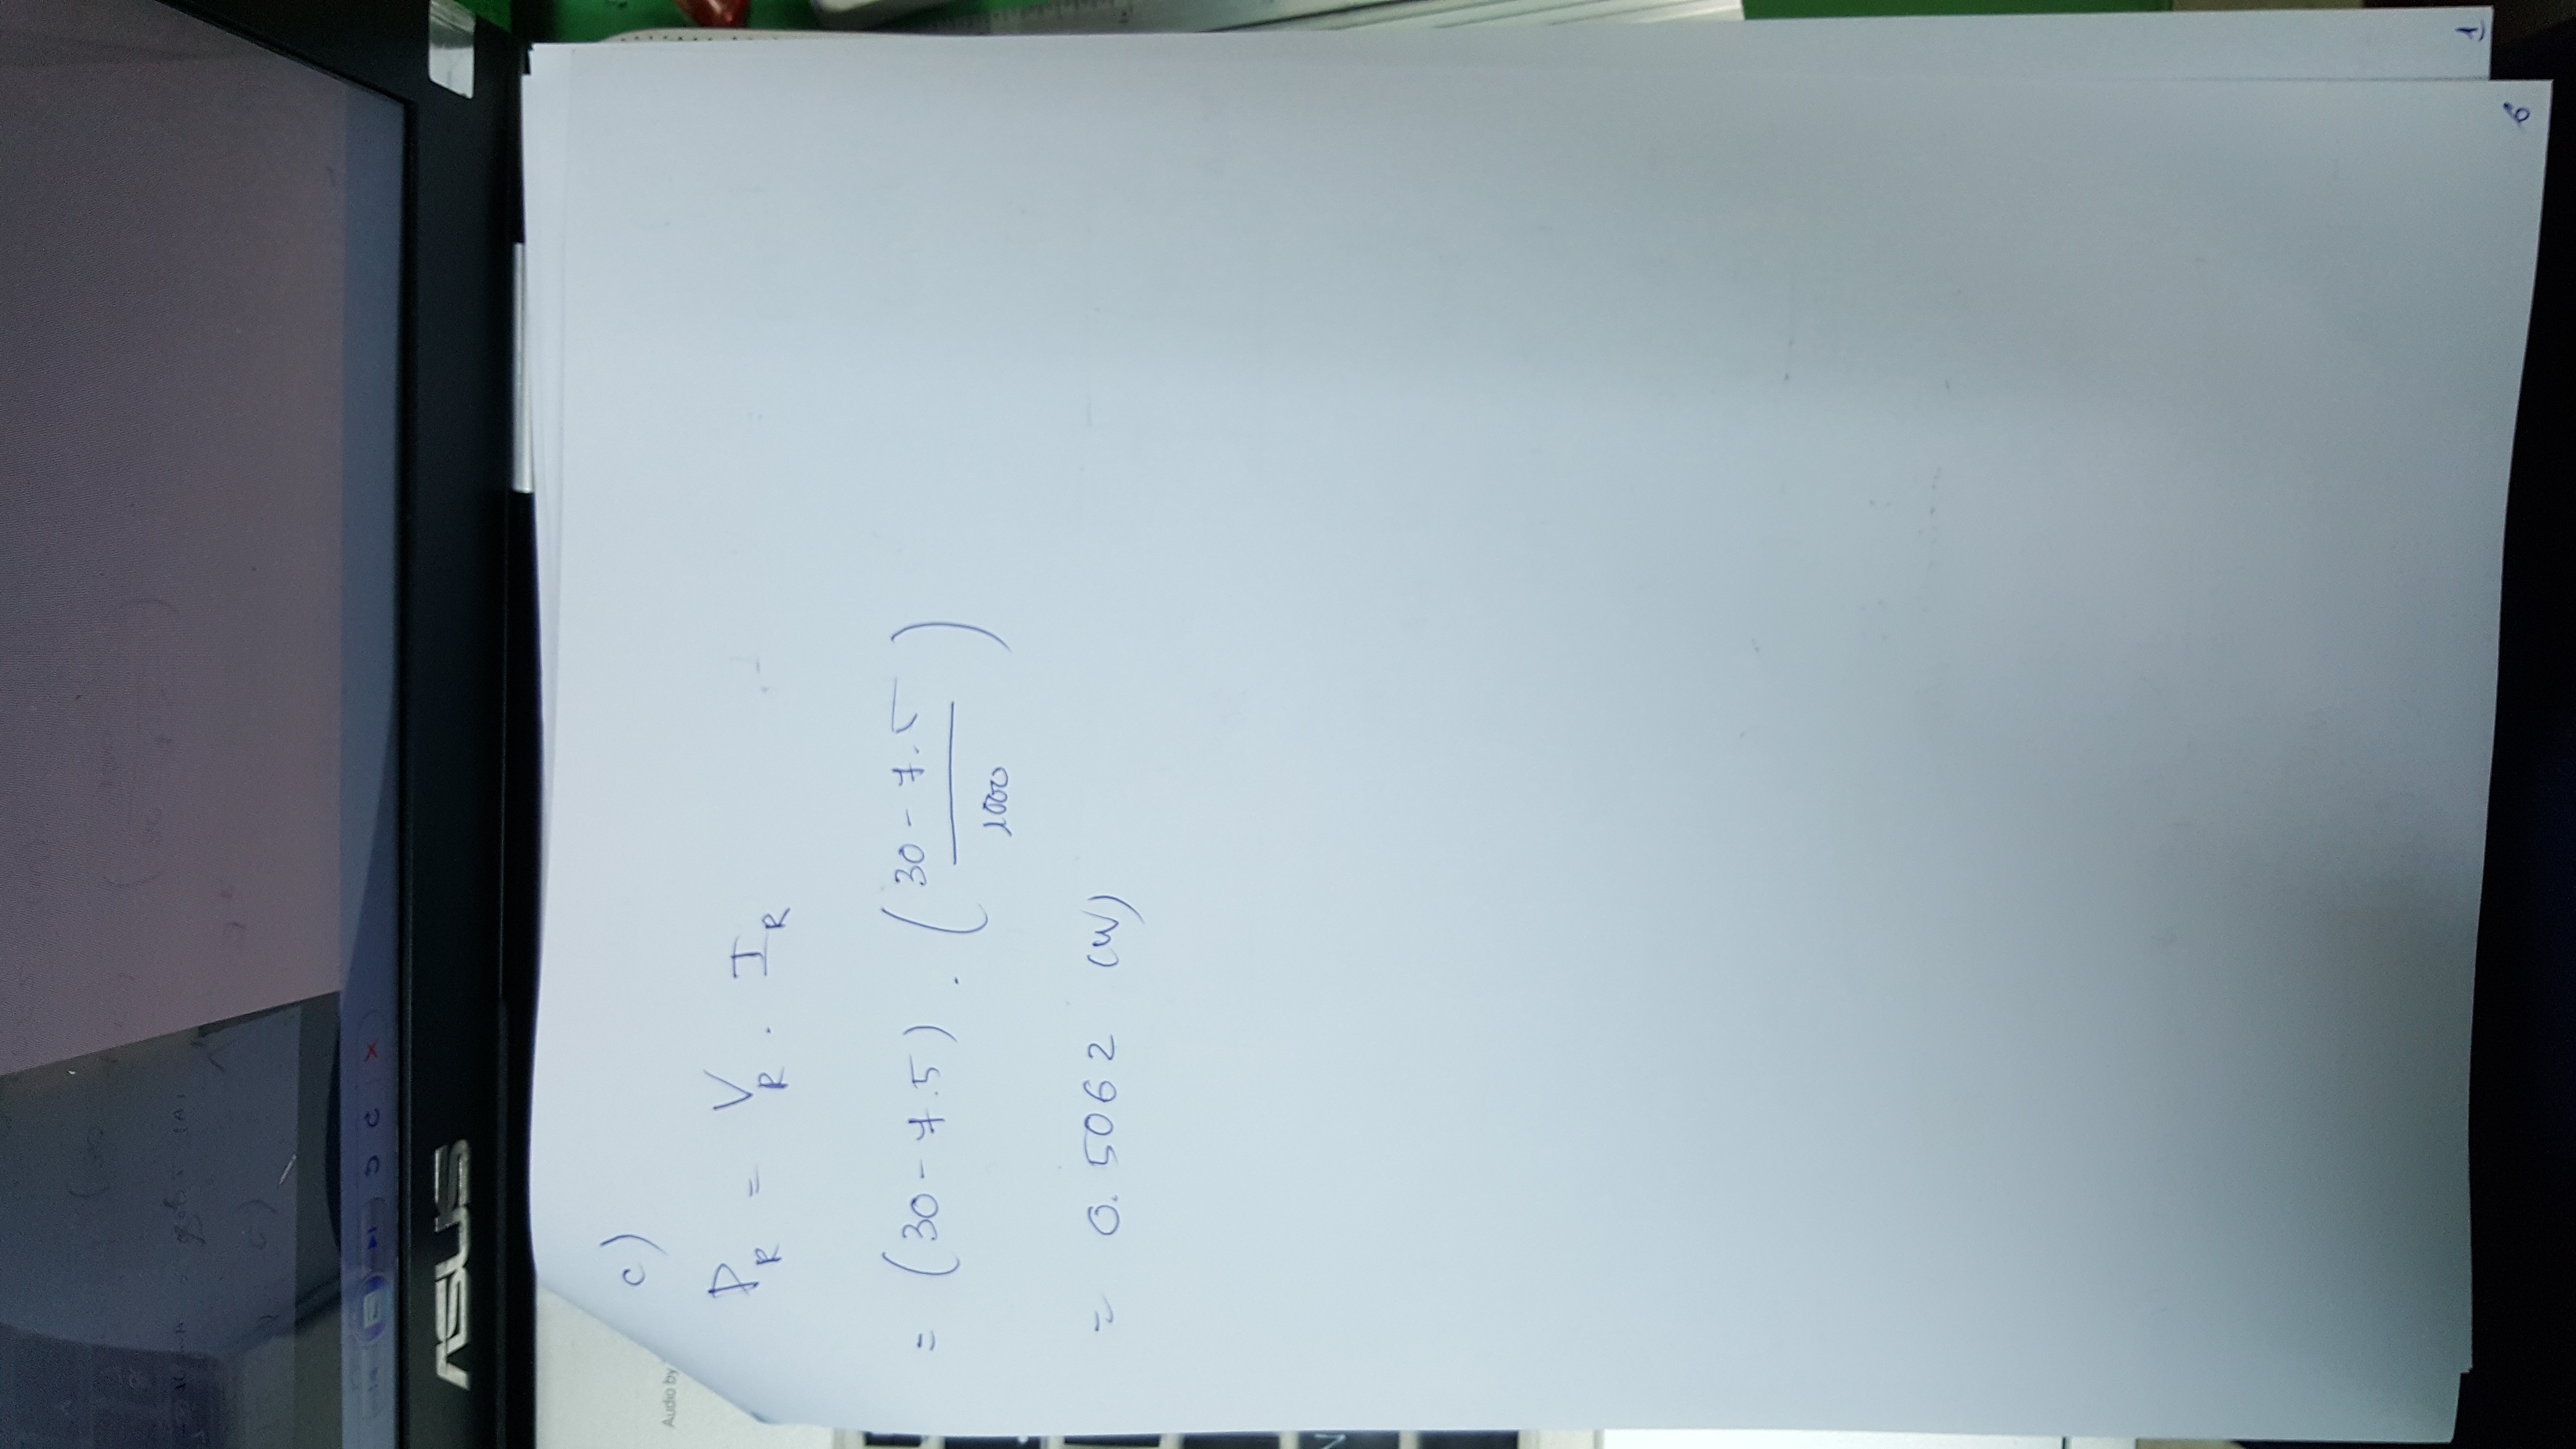 ASUS
Audio by
c)
P_R = V_R . I_R
= (30 - 7.5) . (30 - 7.5 / 1000)
= 0.5062 (W)
1
6